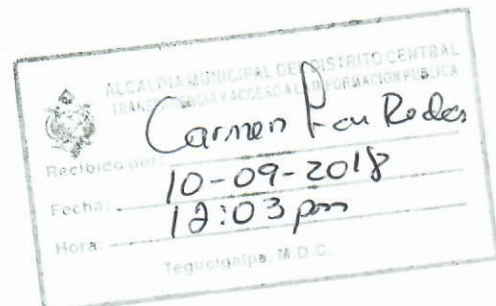 ALCALDIA MUNICIPAL DEL DISTRITO CENTRAL
TRANSPARENCIA Y ACCESO A LA INFORMACION PUBLICA
Carmen
Recibido por:
Fecha: 10-09-2018
Hora: 12:03 pm
Tegucigalpa, M.D.C.